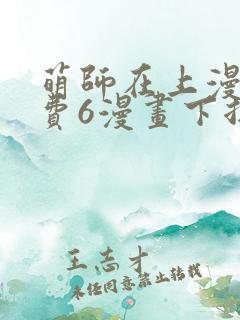 萌師在上漫
費6漫畫下拉
王志才
未經同意禁止轉載